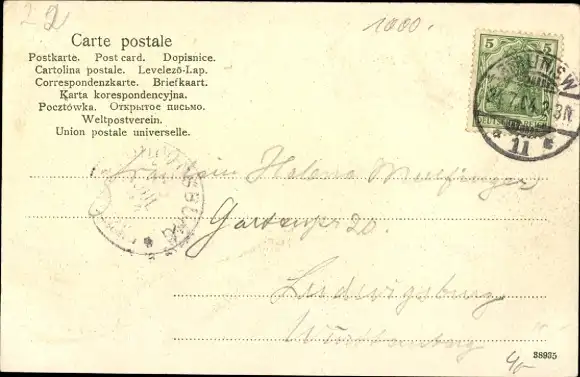 22
1000.
Carte postale
Postkarte. Post card. Dopisnice.
Cartolina postale. Levelező-Lap.
Correspondenzkarte. Briefkaart.
Karta korespondencyjna.
Pocztówka. Открытое письмо.
Weltpostverein.
Union postale universelle.
5 5
DEUTSCHES REICH
BERLIN S.W.
3-3N
* 11 *
LUDWIGSBURG
Fräulein Helena
Gartenstr 20.
Ludwigsburg
Württemberg
38935